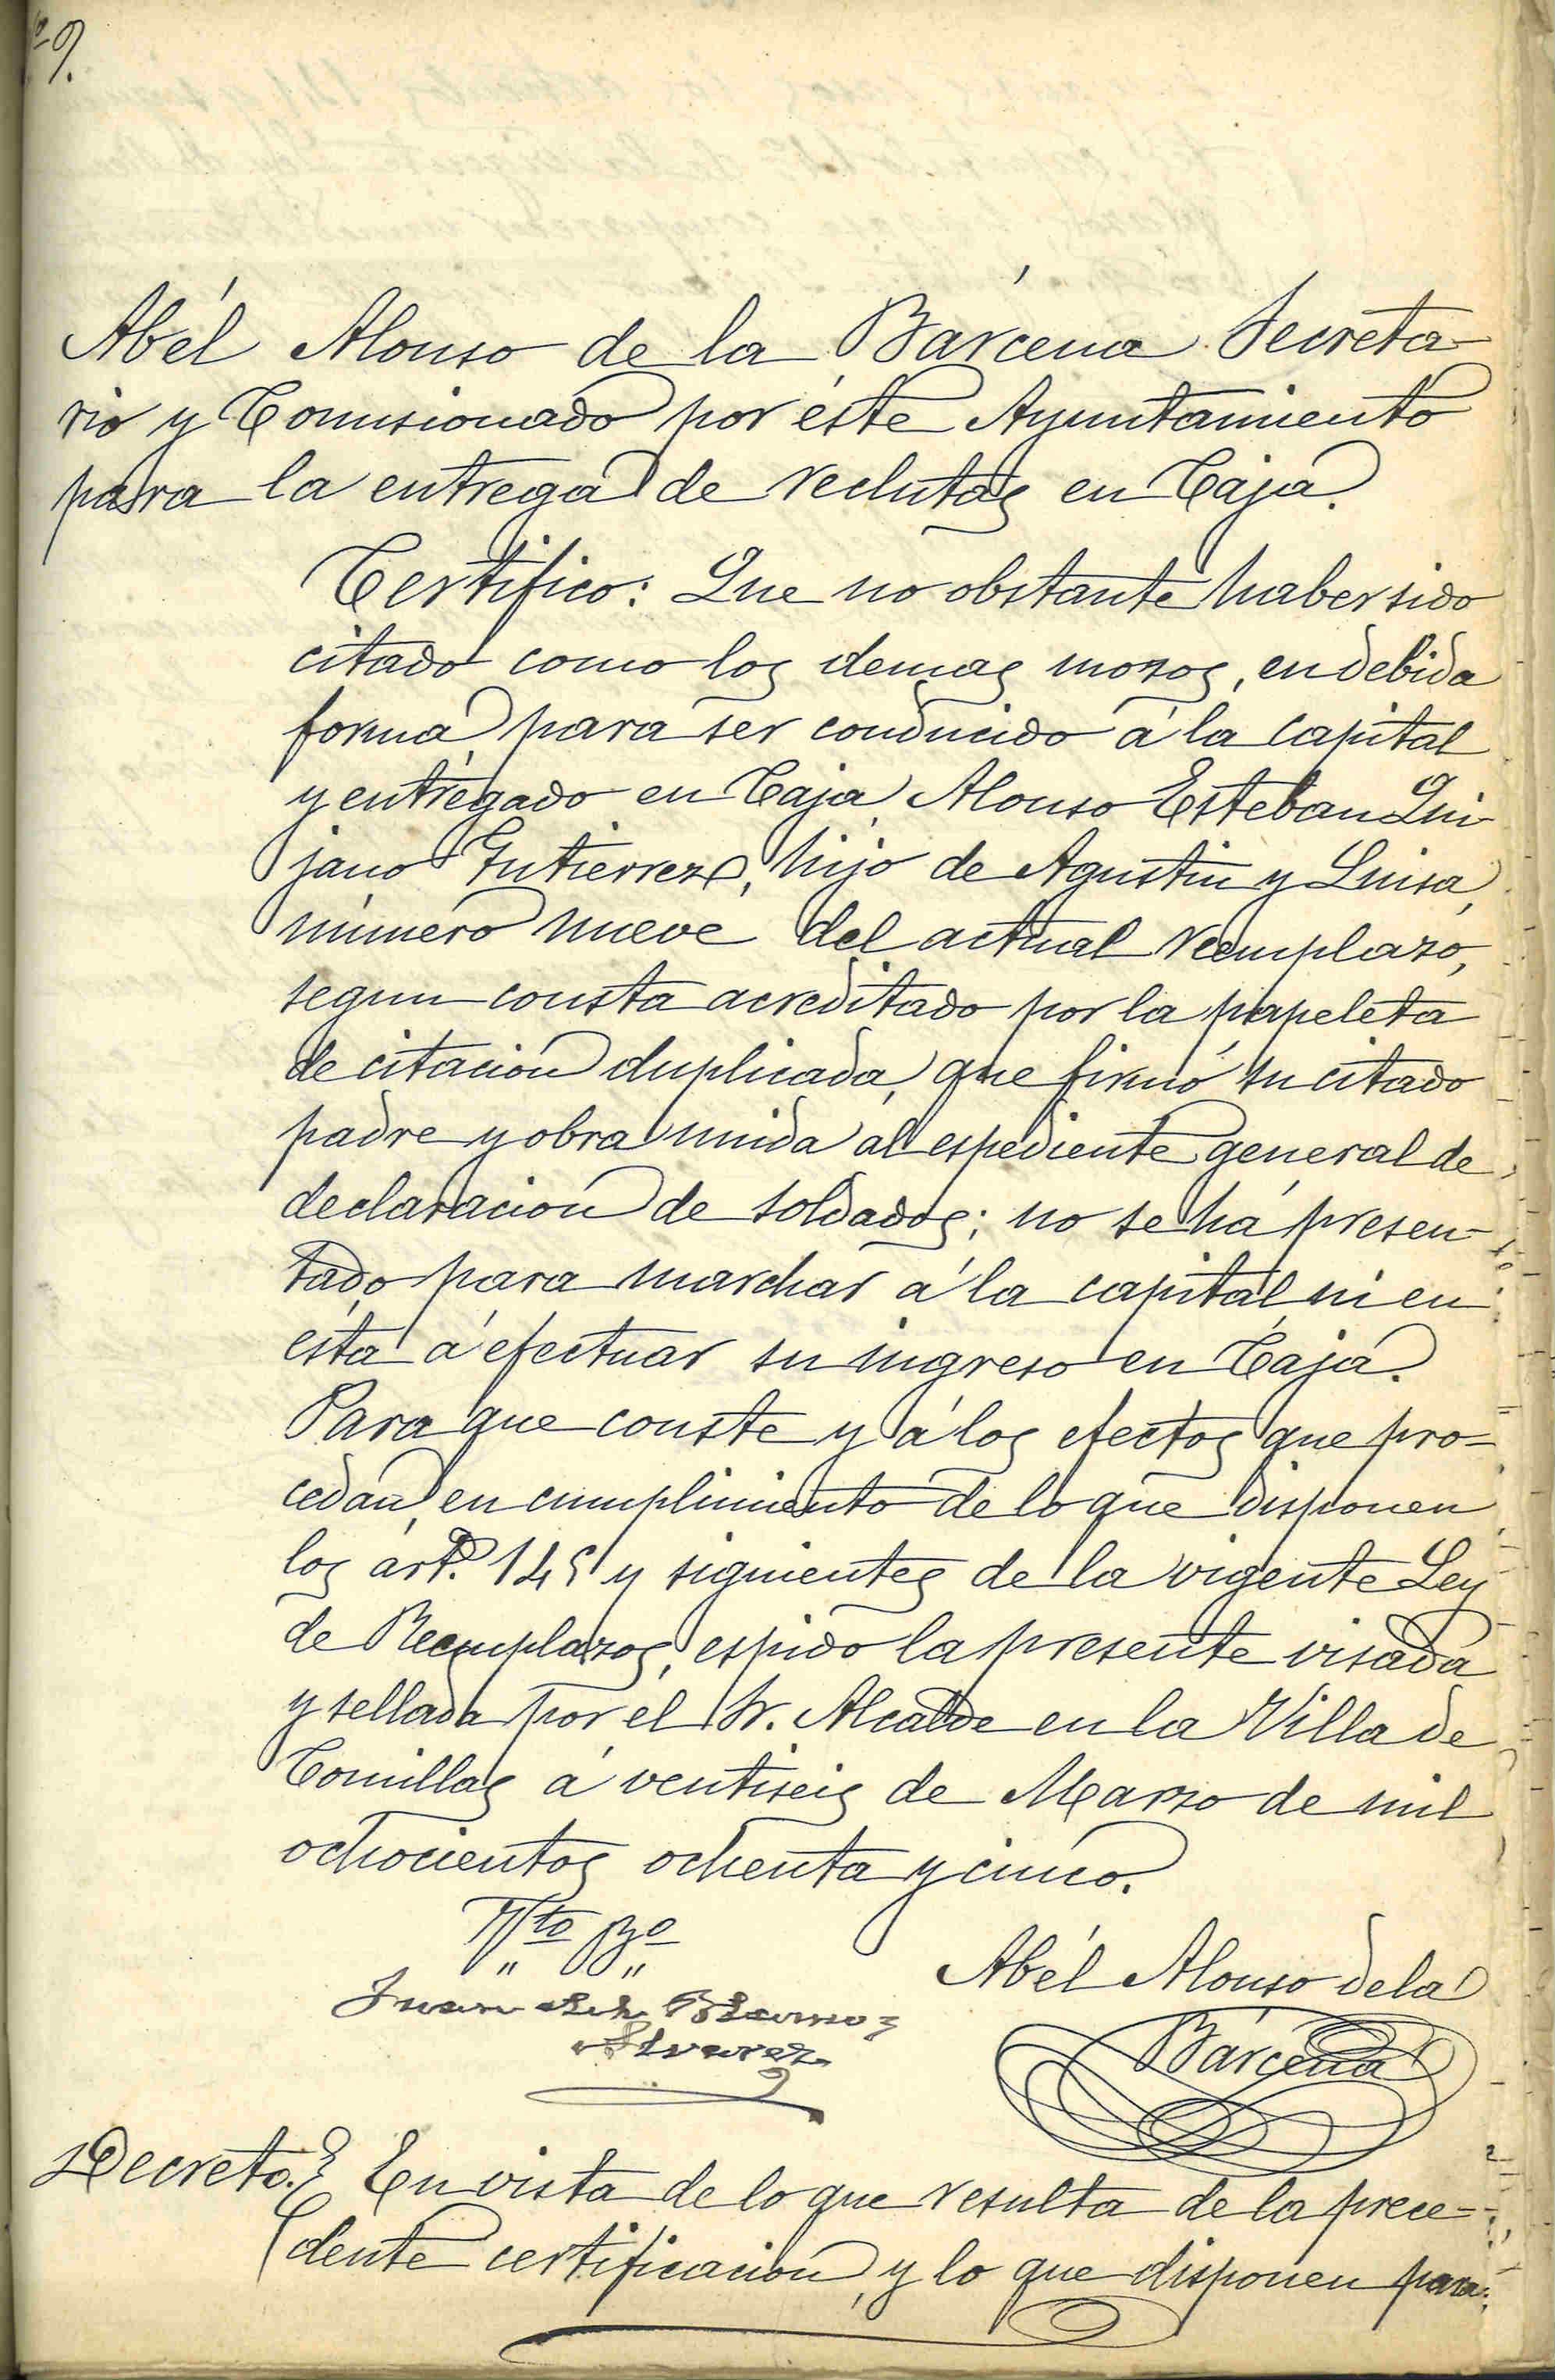 º 9.
Abél Alonso de la Bárcena Secreta-
rio y Comisionado por éste Ayuntamiento
para la entrega de reclutas en Caja.
Certifico: Que no obstante haber sido
citado como los demas mozos, en debida
forma, para ser conducido á la capital
y entregado en Caja, Alonso Esteban Qui-
jano Gutierrez, hijo de Agustin y Luisa,
número nueve del actual reemplazo,
segun consta acreditado por la papeleta
de citación duplicada, que firmó su citado
padre y obra unida al espediente general de
declaración de soldados; no se há presen-
tado para marchar á la capital, ni en
ésta á efectuar su ingreso en Caja.
Para que conste y á los efectos que pro-
cedan, en cumplimiento de lo que disponen
los artº. 145 y siguientes de la vigente Ley
de Reemplazos, espido la presente visada
y sellada por el Sr. Alcalde en la Villa de
Comillas á ventiseis de Marzo de mil
ochocientos ochenta y cinco.
Vto Bo
Abél Alonso de la
Juan
Bárcena
Alvarez
Decreto. En vista de lo que resulta de la prece-
dente certificación, y lo que disponen para